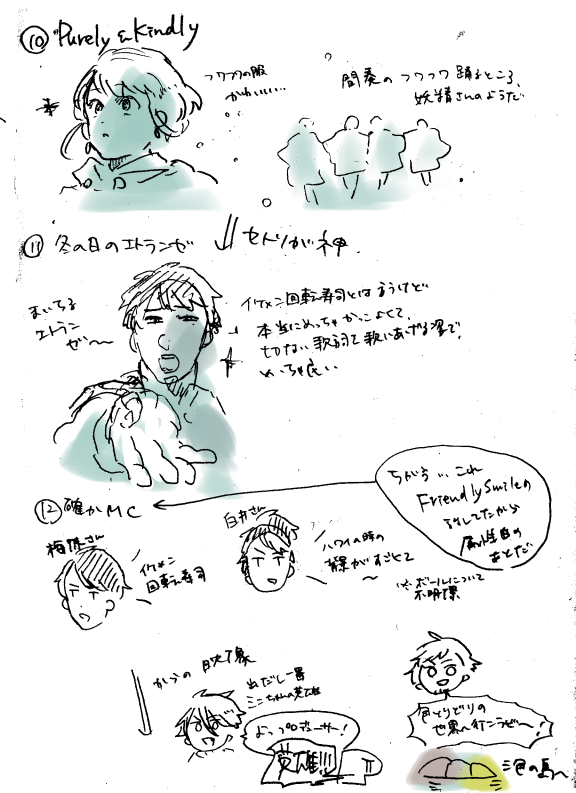 ⑩ Purely & Kindly
フワフワの服
かわいい…
間奏のフワフワ踊るところ、
妖精さんのようだ
⑪ 冬の日のエトランゼ
セトリが神
まいちる
エトラン
ゼ〜〜
イケメン回転寿司とはまうけど
本当にめっちゃかっこよくて、
切ない歌詞で歌いあげる姿で、
めっちゃ良い
ちがう… これ
Friendly Smileの
あとだ
⑫ 確かMC
梅原さん
イケメン
回転寿司
白井さん
ハワイの時の
背景がすごくて
ボールについて
不明瞭
からの映像
出だし一番
ミニちゃんの英雄
よっ プロデューサー!
英雄!!!
色とりどりの
世界へ行こうぜ〜!
三色の島へ